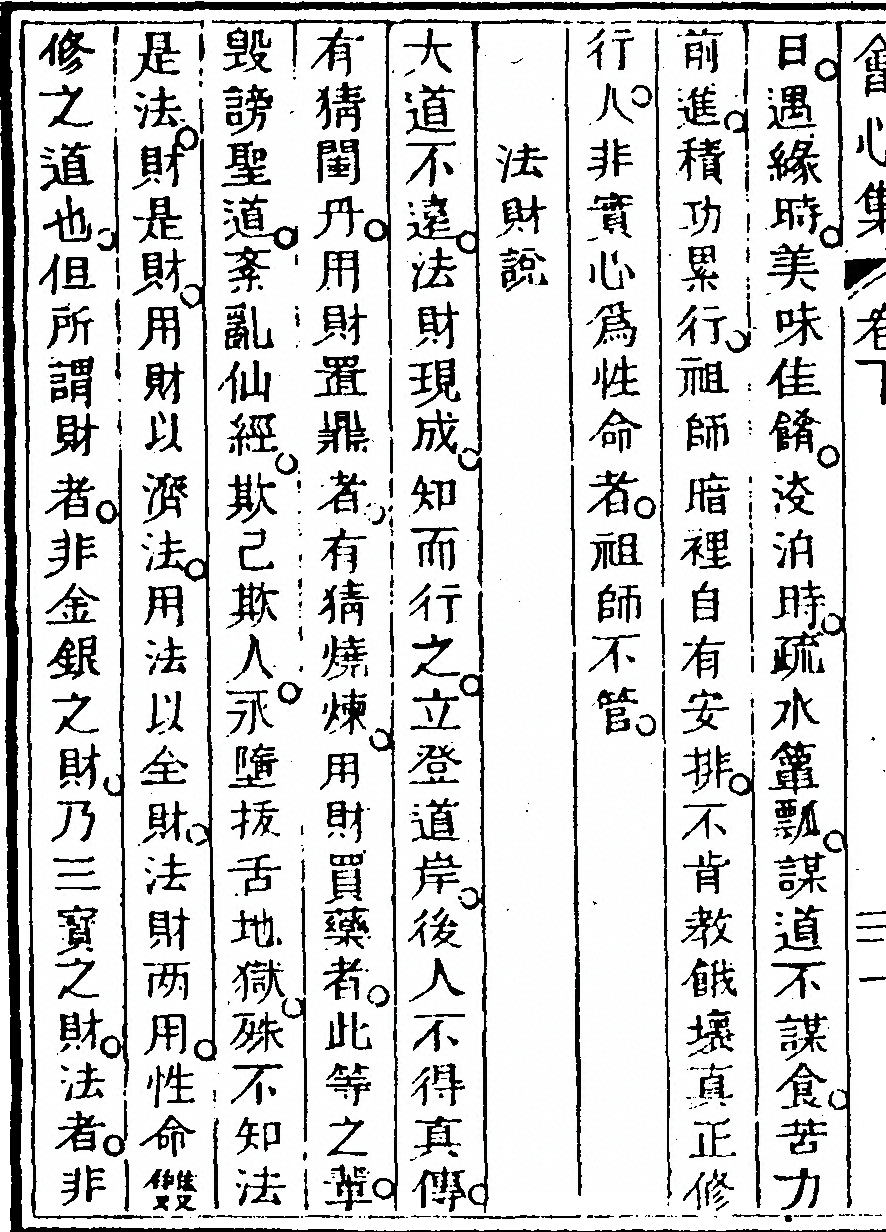 會心集 卷下 三一
日遇緣時美味佳餚淡泊時疏水簞瓢謀道不謀食苦力
前進積功累行祖師暗裡自有安排不肯教餓壞真正修
行人非實心為性命者祖師不管
法財說
大道不遠法財現成知而行之立登道岸後人不得真傳
有猜閨丹用財置鼎者有猜燒煉用財買藥者此等之輩
毀謗聖道紊亂仙經欺己欺人永墮拔舌地獄殊不知法
是法財是財用財以濟法用法以全財法財两用性命雙
修之道也但所謂財者非金銀之財乃三寶之財法者非